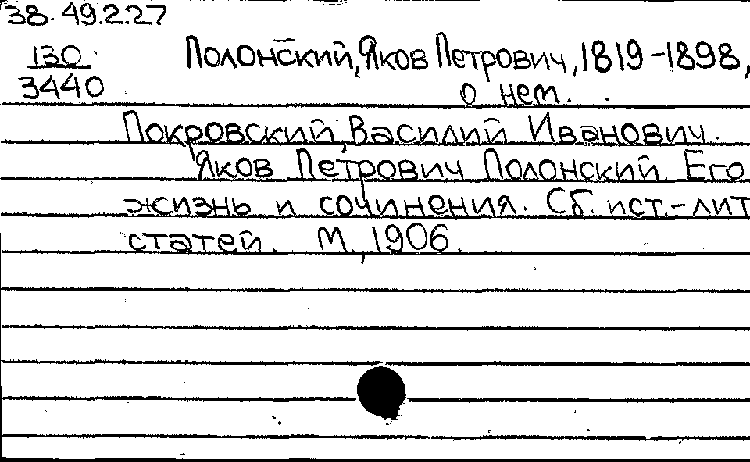 38.49.2.27
130 Полонский, Яков Петрович, 1819-1898,
3440
о нем.
Покровский, Василий Иванович.
Яков Петрович Полонский. Его
жизнь и сочинения. Сб. ист.-лит
статей. М., 1906.